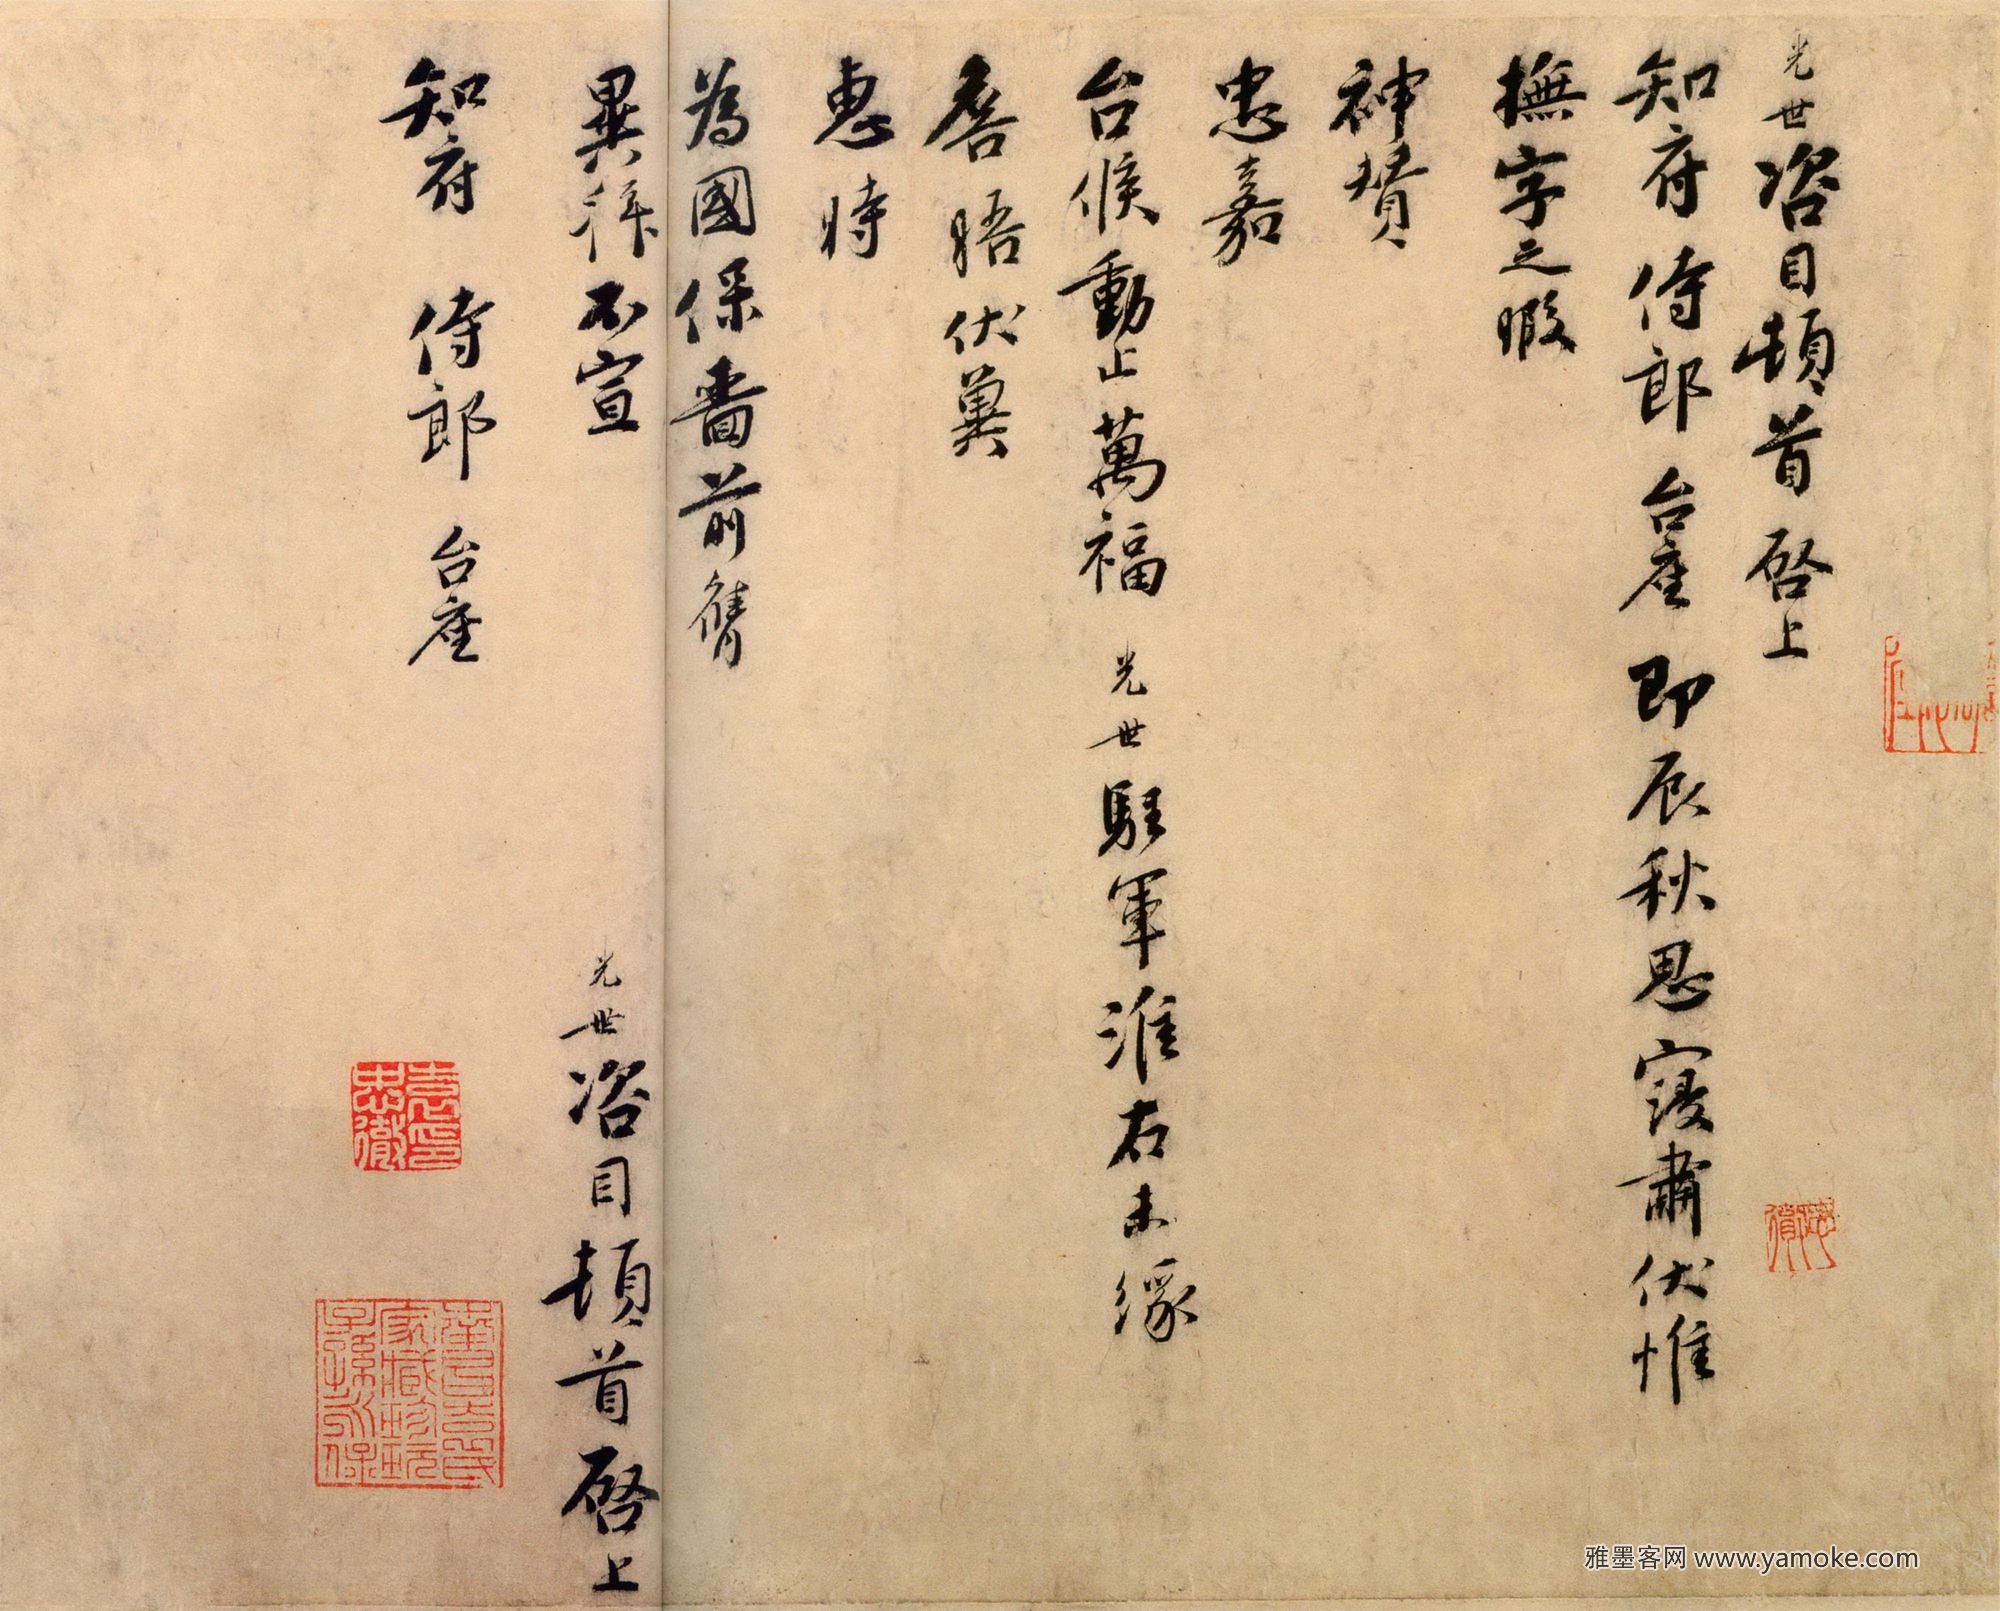 光世咨目頓首啓上
知府侍郎台座即辰秋思寖肅伏惟
撫字之暇
神贊
忠嘉
台候動止萬福光世駐軍淮右未緣
詹晤伏冀
惠時
為國保嗇前膺
異拜不宣 光世咨目頓首啓上
知府侍郎台座
袁印忠徹
家藏珍玩
子孫永保
雅墨客网 www.yamoke.com